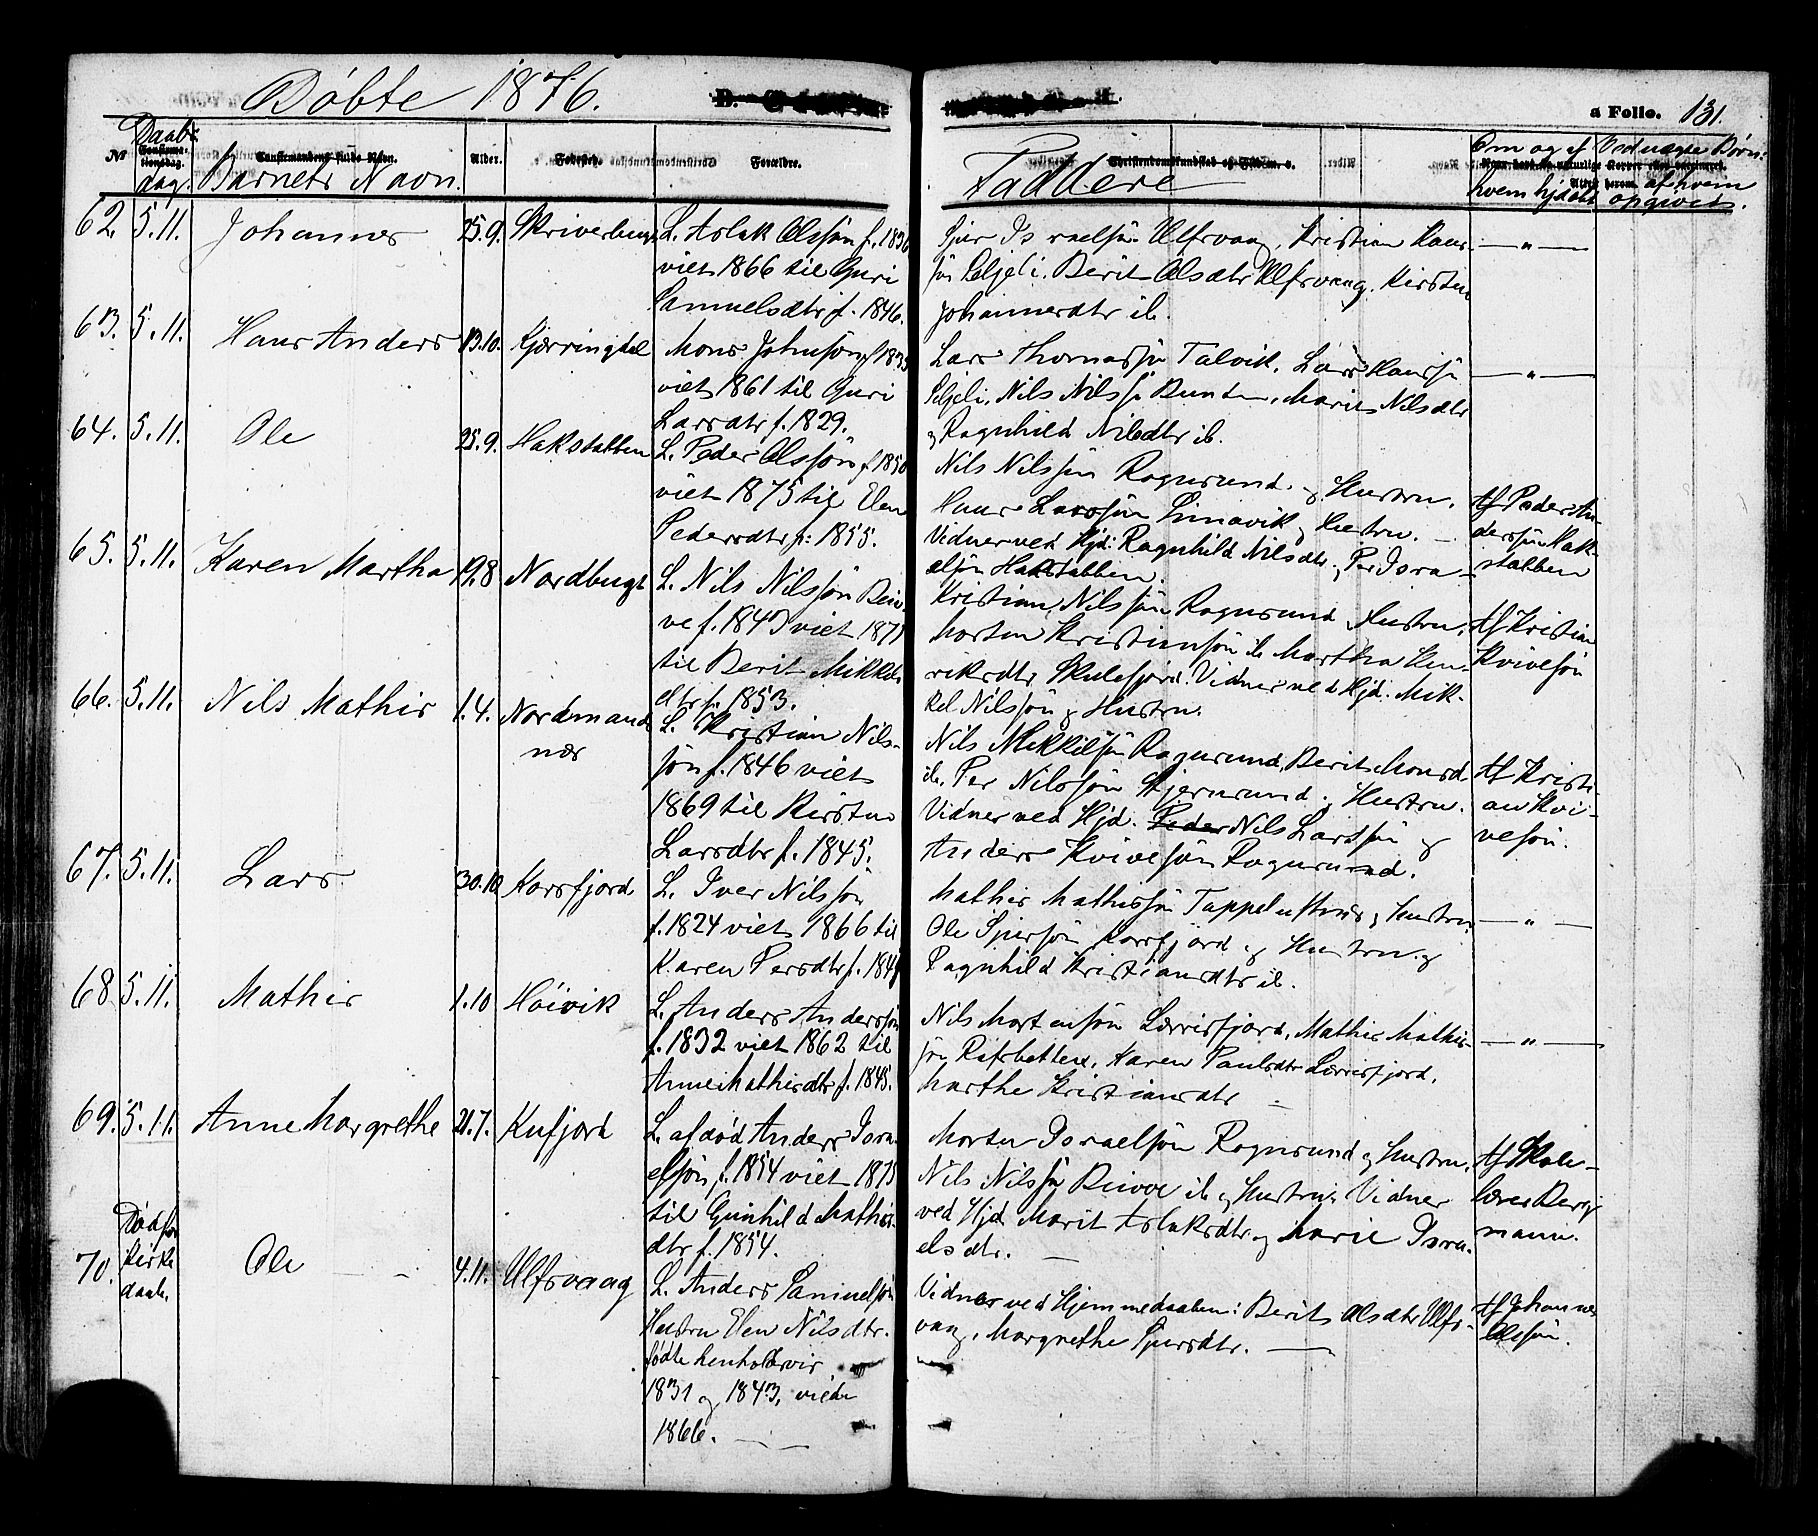 Døbte 1876.
D.
a Folio. 131.
№
Daabs
Confirma-
tionsdag.
dag.
Confirmandens fulde Navn.
Barnets Navn.
Alder.
Fødested.
Forældre.
Faddere
Christendomskundskab og Flid m. v.
Om og af
hvem hjdøbt
Ved uægte Børn:
af hvem
opgivet.
62. 5.11. Johannes 25.9. Skriverbugt L. Aslak Olssøn f. 1836
viet 1866 til Guri
Samuelsdtr f. 1846.
Sjur Israelsøn Ulfsvaag, Kristian Hans-
søn Seljeli. Berit Olsdtr Ulfsvaag. Kirsten
Johannesdtr ib.
— " —
63. 5.11. Hans Anders 13.10. Kjærringdal Mons Johnsøn f 1835
viet 1861 til Guri
Larsdtr f. 1829.
Lars Thomassøn Talvik, Lars Hanssøn
Seljeli, Nils Nilssøn Bunden, Marit Nilsdtr
og Ragnhild Nilsdtr ib.
— " —
64. 5.11. Ole 25.9. Hakstabben L. Peder Olssøn f 1850
viet 1875 til Elen
Pedersdtr f: 1855.
Nils Nilssøn Rognsund og Hustru,
Hans Larssøn Simavik og Hustru. —
Vidner ved Hjd: Ragnhild Nilsdtr og Per Isra-
elsøn Hakstabben.
Af Peder An-
derssøn Hak-
stabben
65. 5.11. Karen Martha 19.8 Nordbugt L. Nils Nilssøn Beiv-
ve f. 1847 viet 1871
til Berit Mikkels
dtr f. 1853.
Kristian Nilssøn Rognsund Hustru,
Morten Kristianssøn ib Martha Hen-
riksdtr Skulesfjord. Vidner ved Hjd: Mik-
kel Nilssøn og Hustru.
Af Kristian
Kvivesøn
66. 5.11. Nils Mathis 1.4. Nordmands
nær
L. Kristian Nils-
søn f. 1846 viet
1869 til Kirsten
Larsdtr f. 1845.
Nils Mikkelsøn Rognsund, Berit Monsd
ib. Per Nilssøn Stjernsund. Hustru.
Vidner ved Hjd. Peder Nils Larssøn og
Anders Kvivesøn Rognsund.
Af Kristi-
an Kvi-
vesøn.
67. 5.11. Lars 30.10 Korsfjord L. Iver Nilssøn
f. 1824 viet 1866 til
Karen Persdtr f. 1841
Mathis Mathissøn Tappeluftnes og Hustru
Ole Sjursøn Korsfjord og Hustru og
Ragnhild Kristiansdtr ib.
— " —
68 5.11. Mathis 1.10 Høivik L. Anders Anderssøn
f. 1832 viet 1862 til
Anne Mathisdtr f. 1845.
Nils Mortensøn Lærrisfjord, Mathis Mathis-
søn Rafsbotten, Karen Paulsdtr Lærrisfjord,
Marthe Kristiansdtr —
— " —
69. 5.11. Anne Margrethe 21.7. Kufjord L. afdød Anders Isra-
elsøn f. 1854 viet 1875
til Gunhild Mathis-
dtr f. 1854.
Morten Israelsøn Rognsund og Hustru,
Nils Nilssøn Beivve ib og Hustru. Vidner
ved Hjd Marit Aslaksdtr og Marie Isra-
elsdtr. —
Af Skole-
lærer Berg
mann.
70. Død før
kirke
daab.
Ole — - 4.11. Ulfsvaag L. Anders Samuelssøn
Hustru Elen Nilsdtr.
fødte henholdsvis
1831 og 1843, viede
1866. —
Vidner ved Hjemmedaaben: Berit Olsdtr Ulfs-
vaag, Margrethe Sjursdtr. —
Af Johannes
Olssøn.